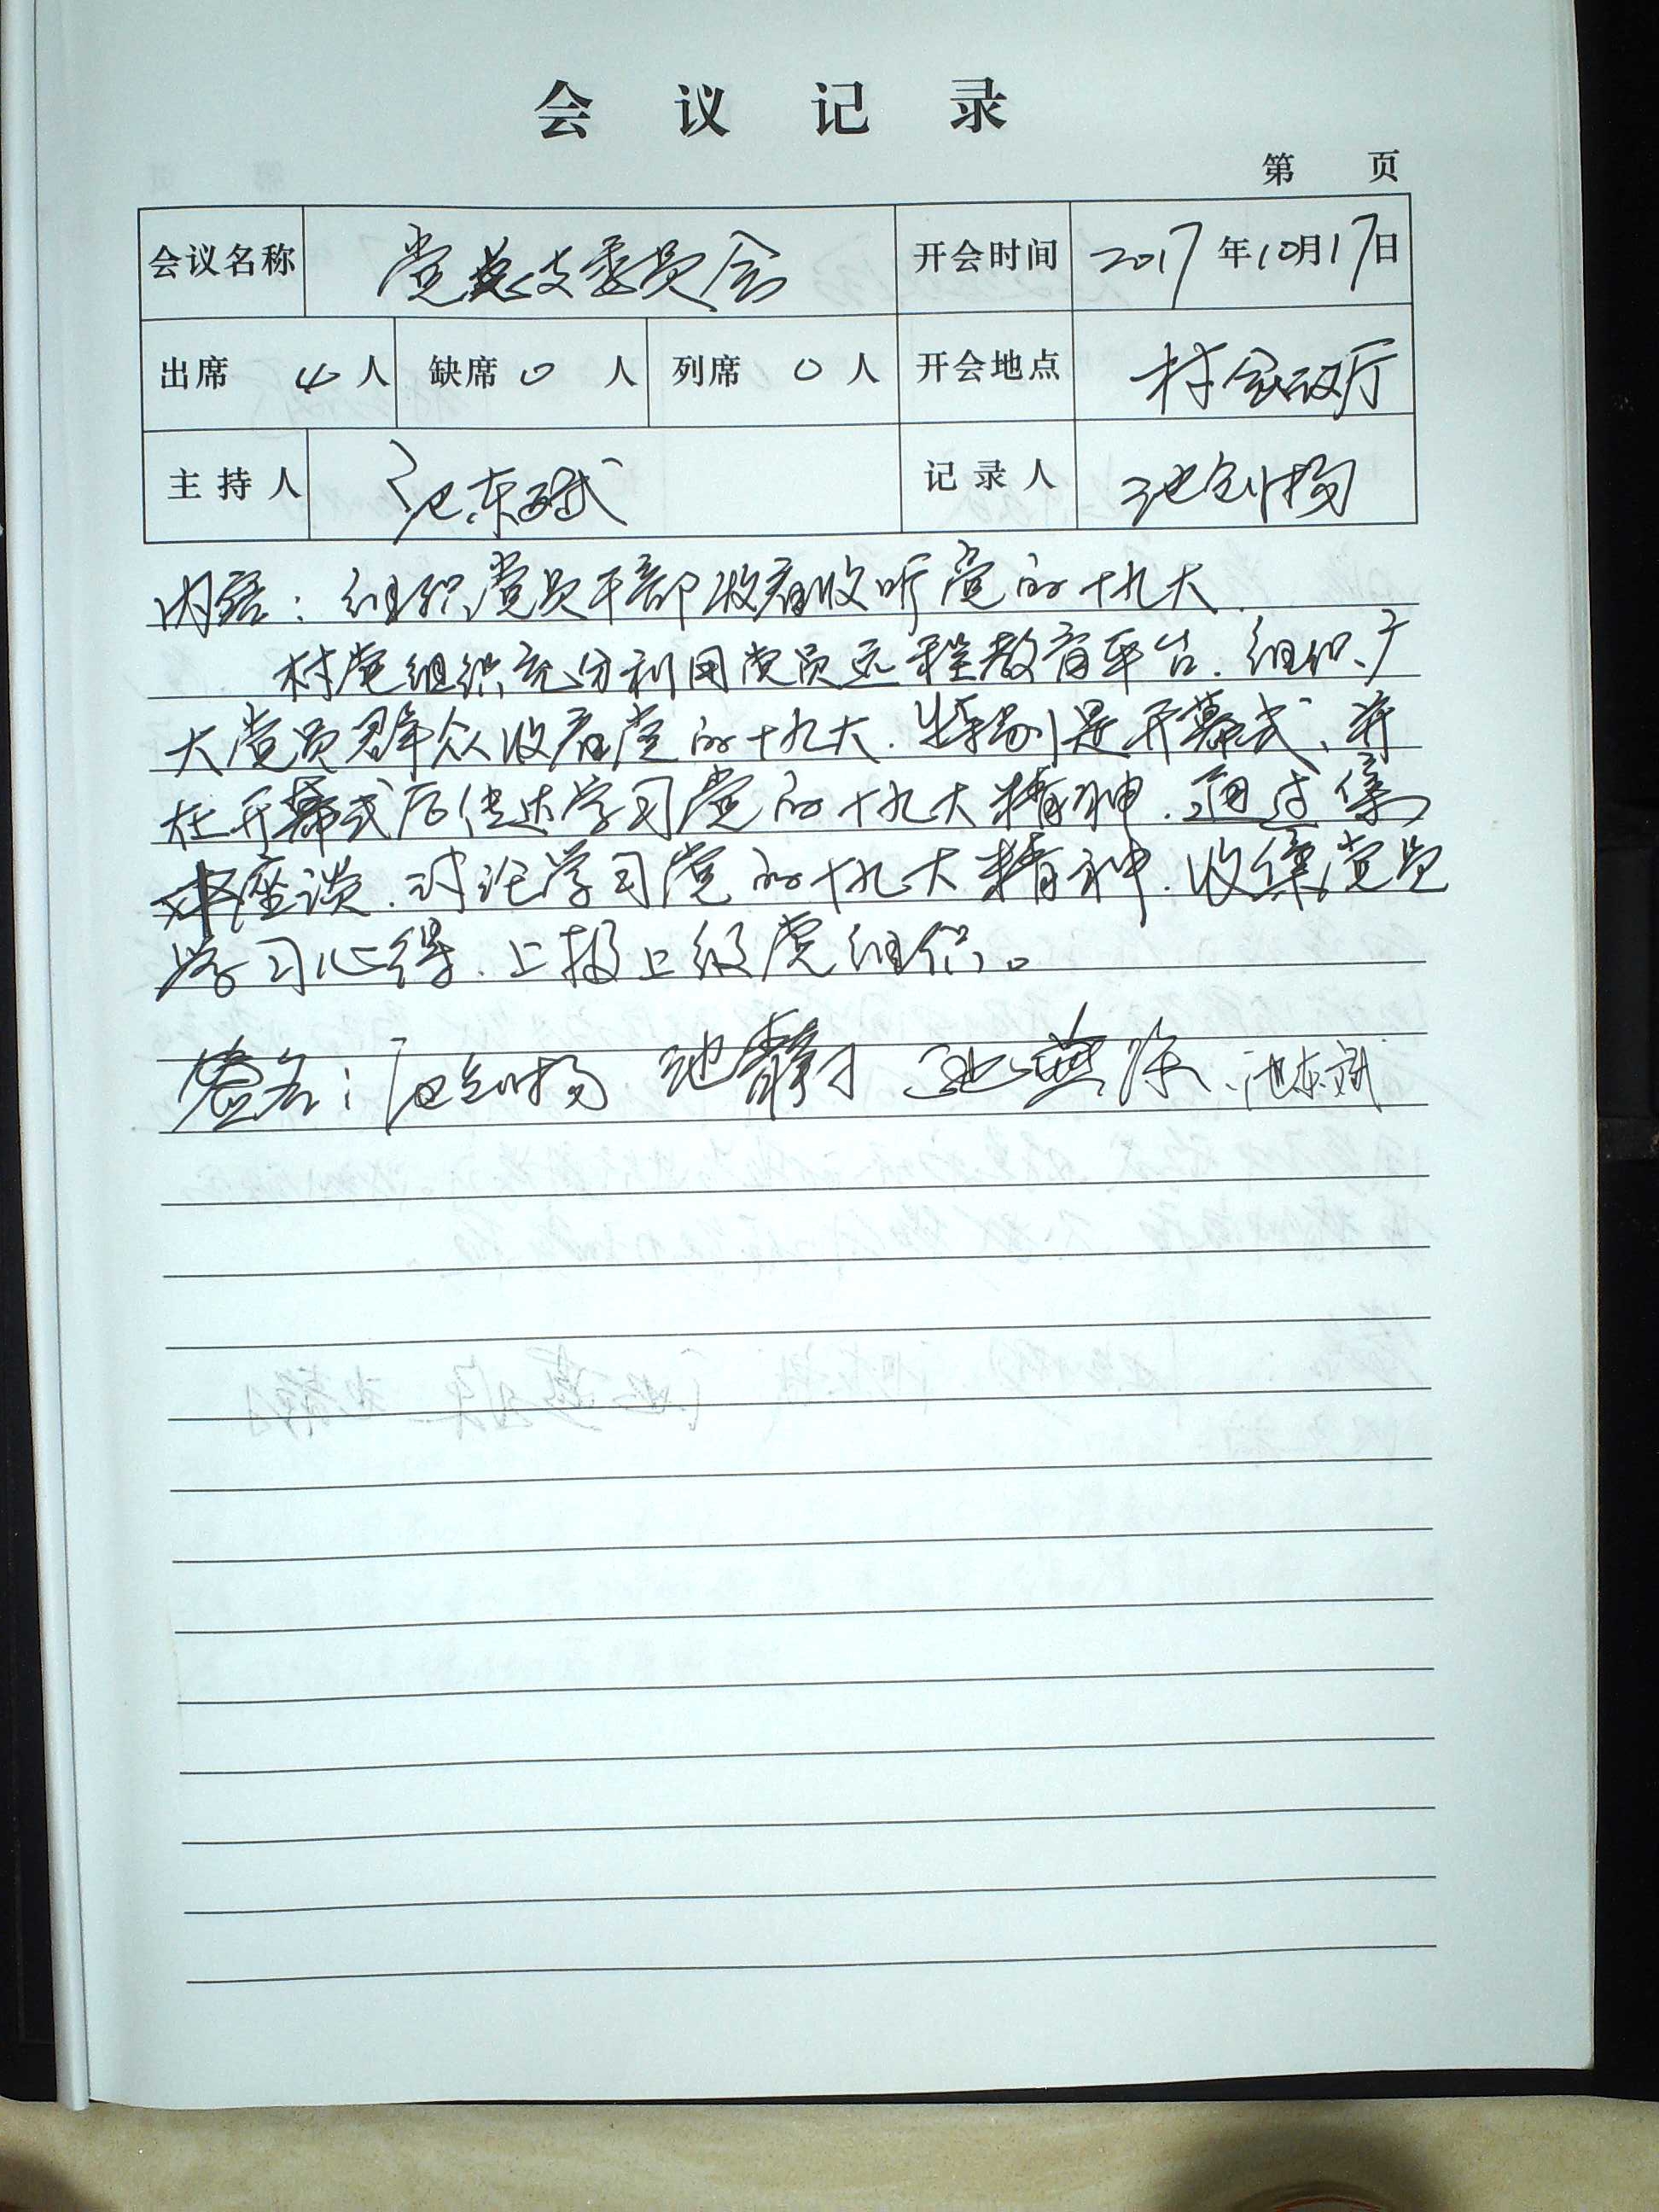 会议记录
第 页
会议名称 党总支委员会 开会时间 2017年10月17日
出席 4人 缺席 0 人 列席 0 人 开会地点 村会议厅
主持人 池东斌 记录人 池剑扬
内容：组织党员干部收看收听党的十九大.
村党组织充分利用党员远程教育平台.组织广
大党员群众收看党的十九大.特别是开幕式、并
在开幕式后传达学习党的十九大精神.通过集
中座谈.讨论学习党的十九大精神.收集党员
学习心得.上报上级党组织。
签名：池剑扬 池静 池燕 、池东斌